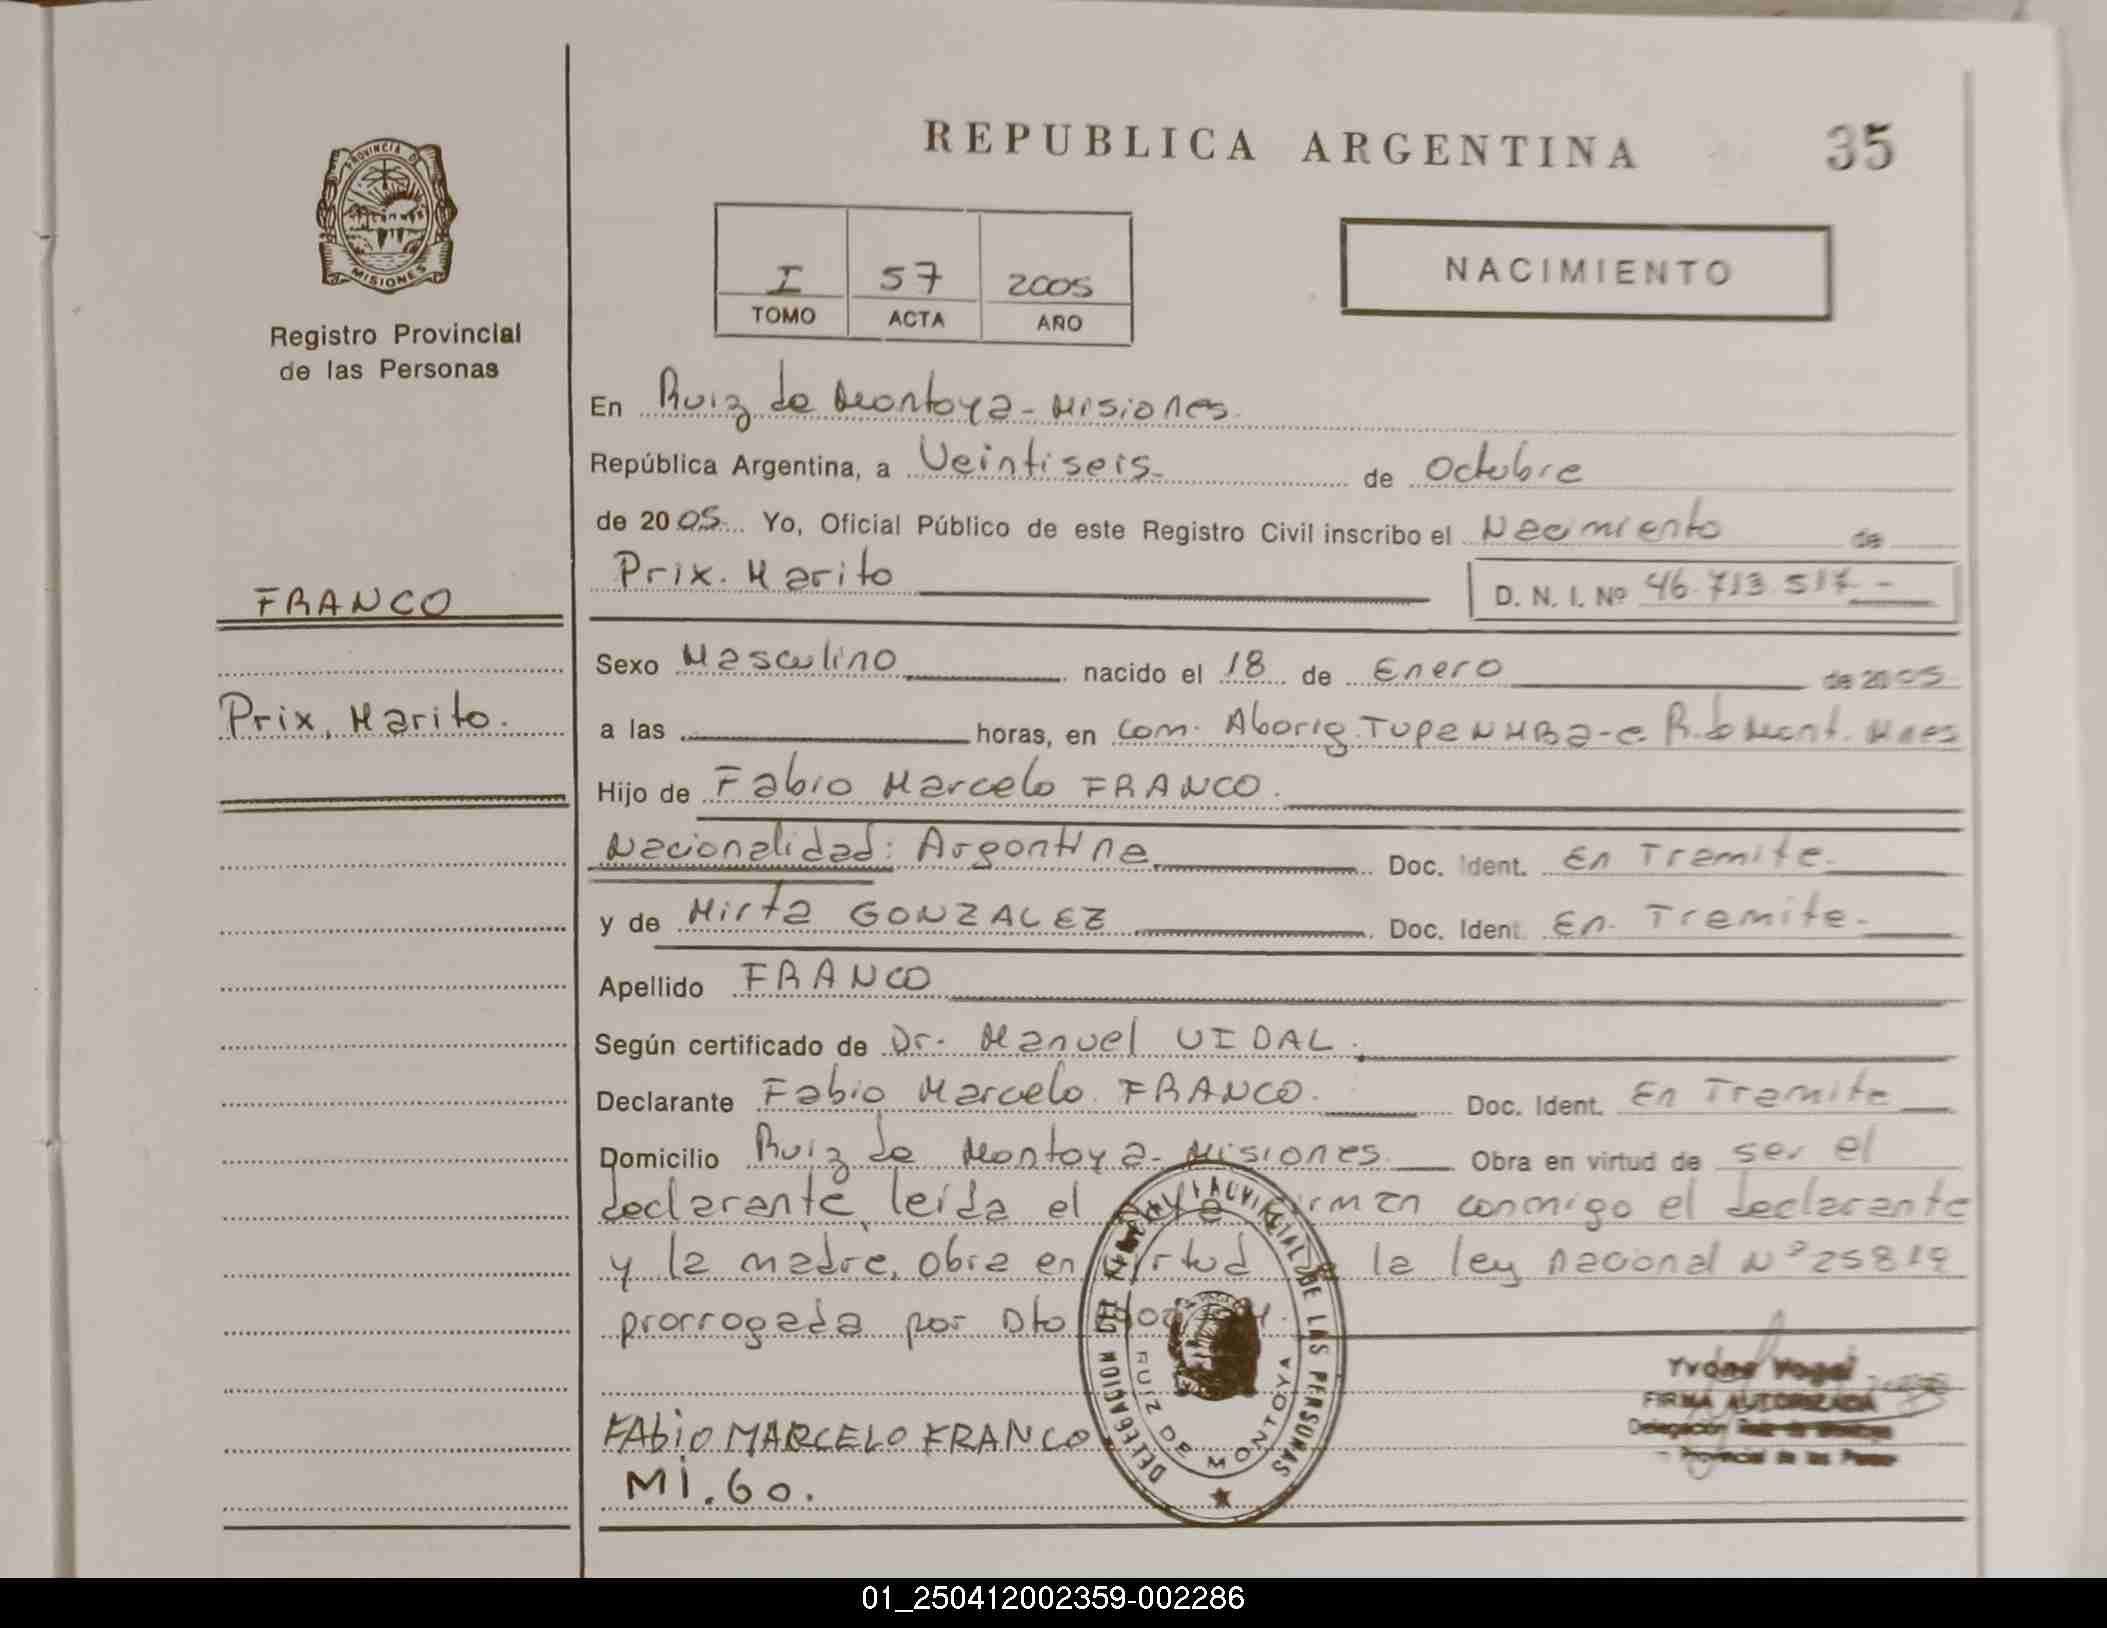 REPUBLICA ARGENTINA
35
PROVINCIA D
MISIONES
Registro Provincial
de las Personas
I 57 2005
TOMO ACTA AÑO
NACIMIENTO
En Ruiz de Montoya - Misiones.
República Argentina, a Veintiseis de Octubre
de 2005 Yo, Oficial Público de este Registro Civil inscribo el Nacimiento de
Prix. Marito
D. N. I. Nº 46.713.517 -
FRANCO
Sexo Masculino nacido el 18 de Enero de 2005
Prix, Marito.
a las horas, en Com. Aborig. R. de Mont. Mnes
Hijo de Fabio Marcelo FRANCO.
Nacionalidad: Argentina Doc. Ident. En Tramite.
y de Mirta GONZALEZ Doc. Ident. En Tramite.
Apellido FRANCO
Según certificado de Dr. Manuel VIDAL.
Declarante Fabio Marcelo FRANCO. Doc. Ident. En Tramite
Domicilio Ruiz de Montoya - Misiones Obra en virtud de ser el
declarante, leida el firman conmigo el declarante
y la madre, obra en virtud la ley nacional Nº 25819
prorrogada por Dto
DELEGACION PROVINCIAL DE LAS PERSONAS
RUIZ DE MONTOYA
Yvone Vogel
FIRMA AUTORIZADA
Delegación Ruiz de Montoya
Provincial de las Perso
FABiO MARCELO FRANCO
Mi.Go.
01_250412002359-002286